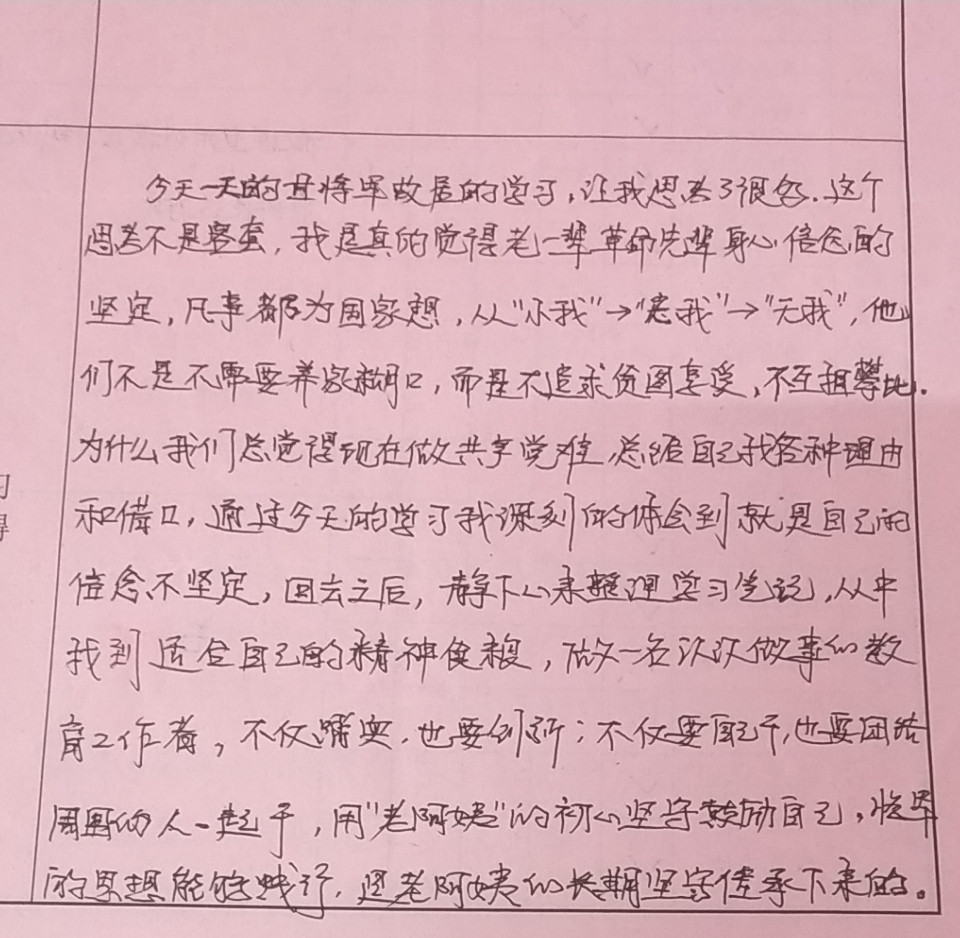 今天一天的甘将军故居的学习，让我思考了很多。这个
思考不是客套，我是真的觉得老一辈革命先辈身心信念的
坚定，凡事都为国家想，从“小我”→“忘我”→“无我”，他
们不是不需要养家糊口，而是不追求贪图享受，不互相攀比.
为什么我们总觉得现在做共享党难，总给自己找各种理由
和借口，通过今天的学习我深刻的体会到就是自己的
信念不坚定，回去之后，静下心来整理学习笔记，从中
找到适合自己的精神食粮，做一名认认做事的教
育工作者，不仅踏实，也要创新；不仅要自己干，也要团结
周围的人一起干，用“老阿姨”的初心坚守鼓励自己，将军
的思想能够践行，是老阿姨的长期坚守传承下来的。
习
得